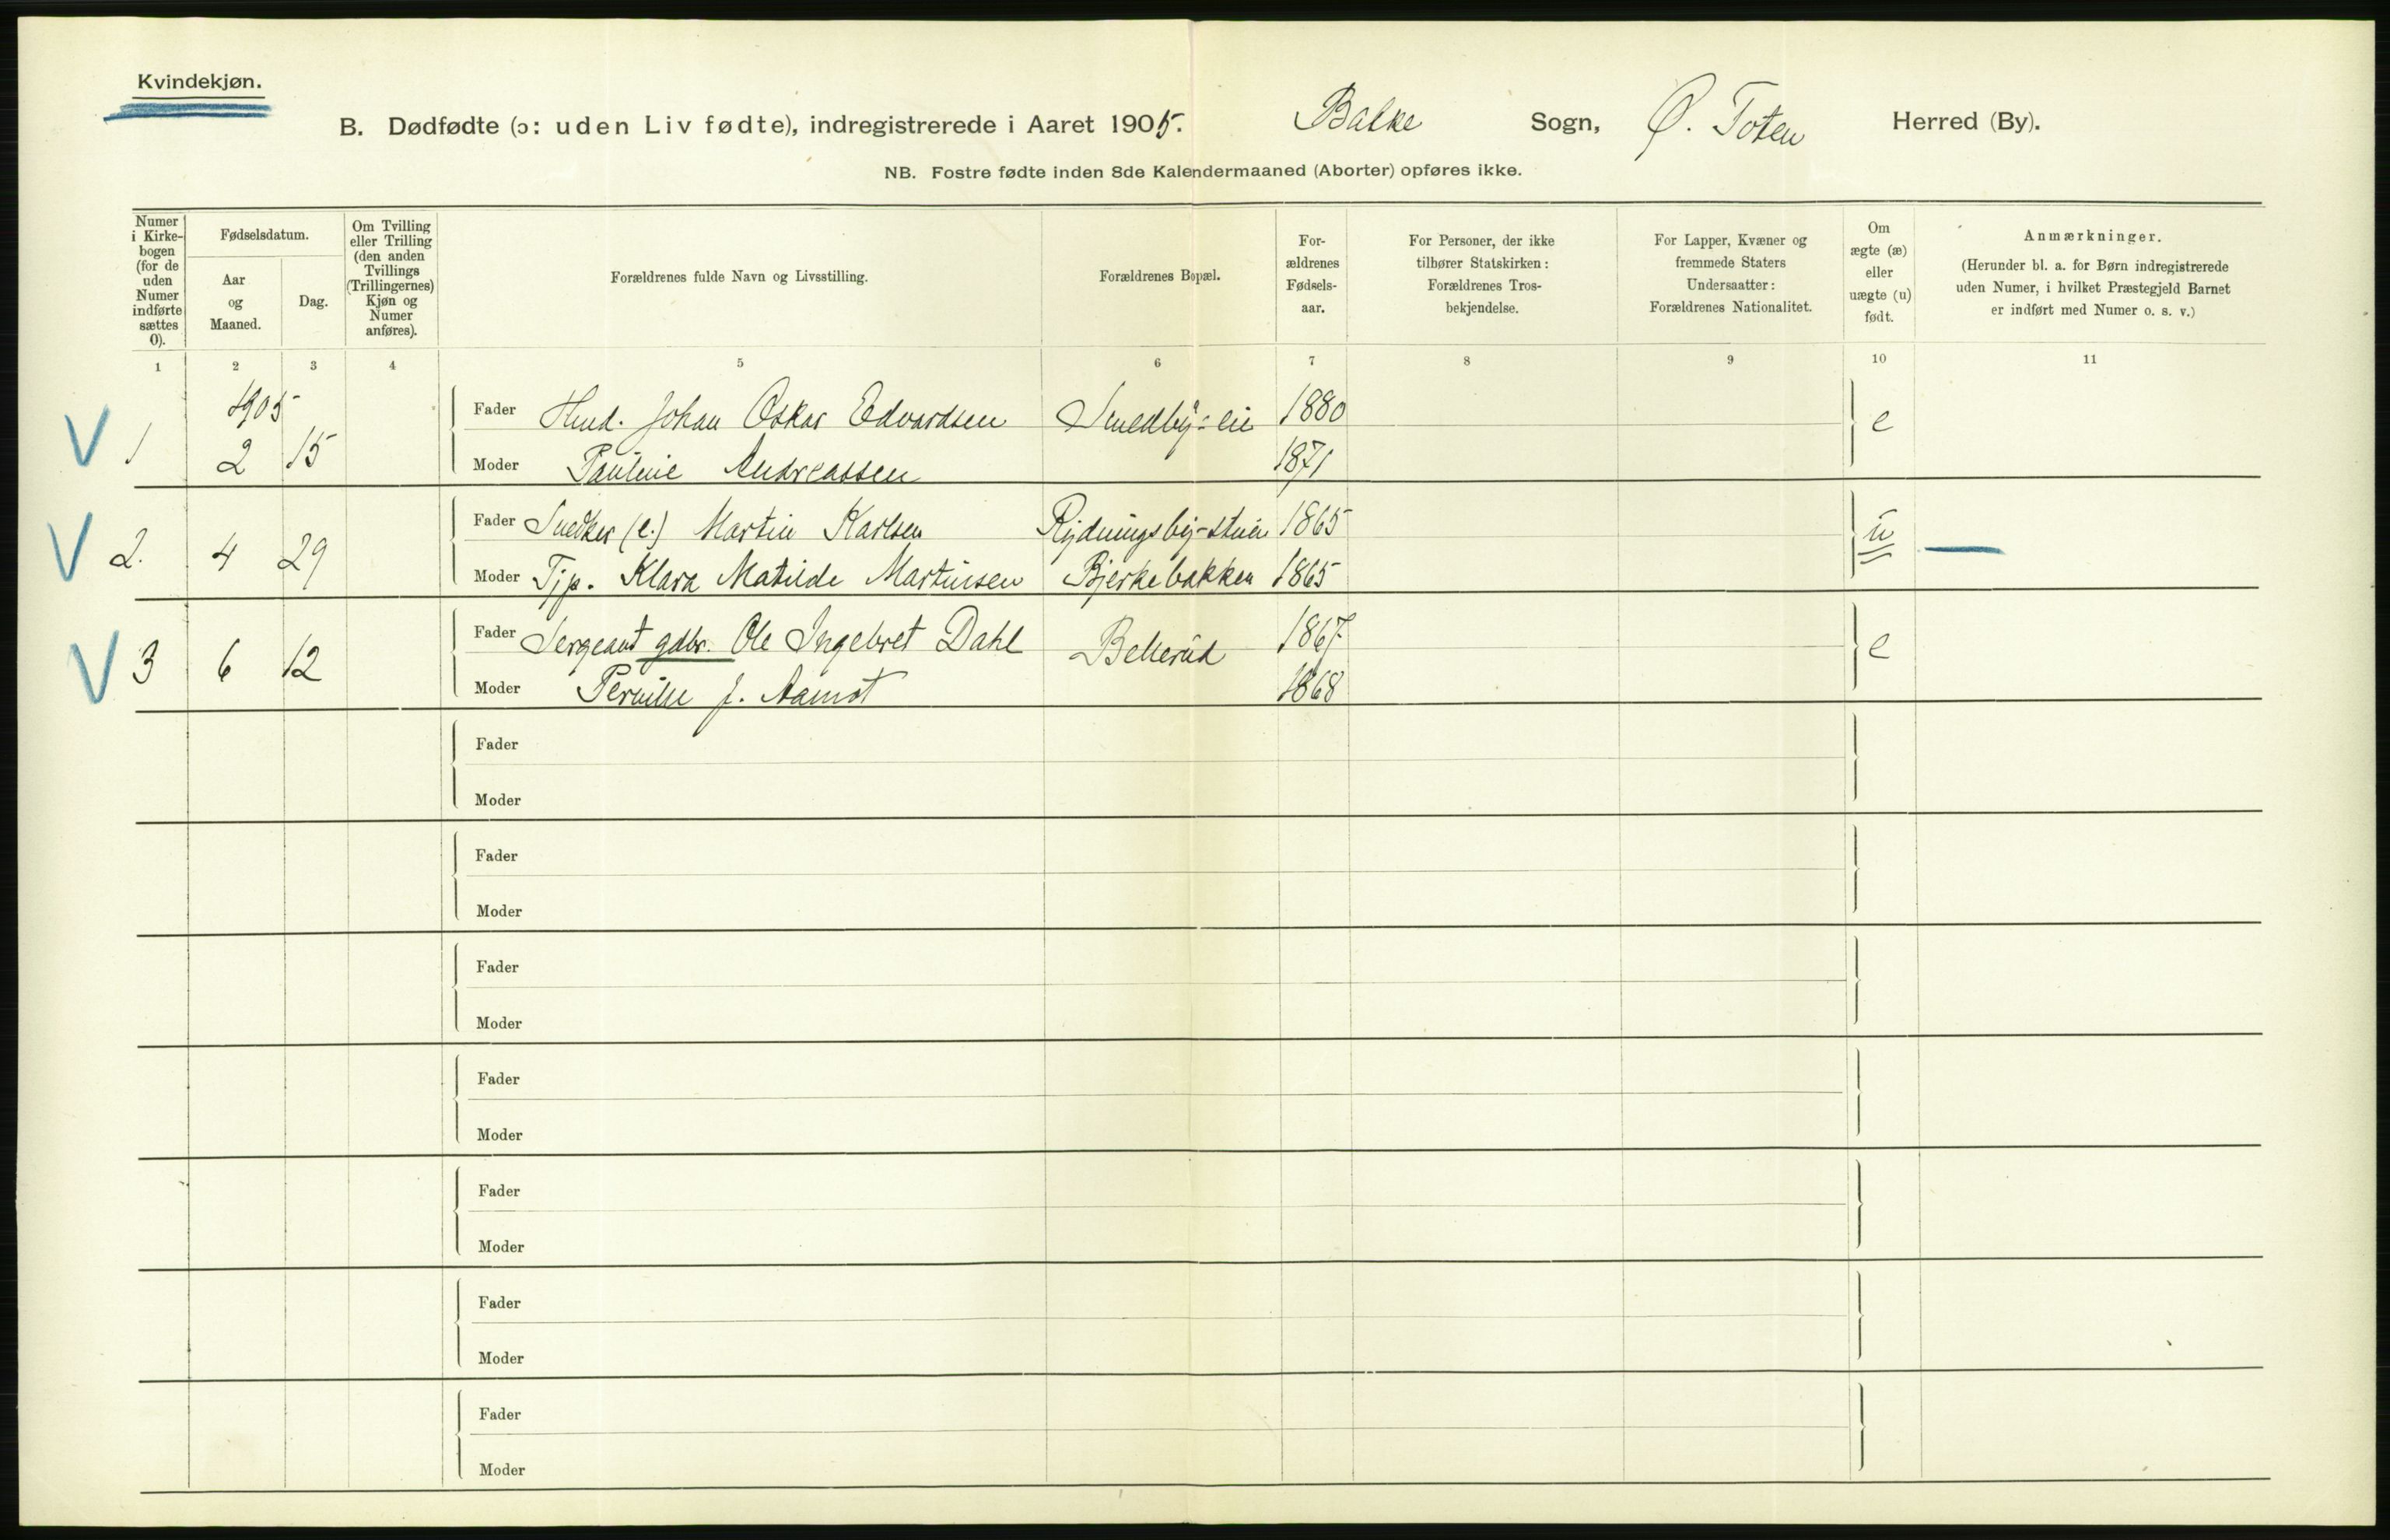 Kvindekjøn.
B. Dødfødte (ɔ: uden Liv fødte), indregistrerede i Aaret 1905. Balke Sogn, Ø. Toten Herred (By).
NB. Fostre fødte inden 8de Kalendermaaned (Aborter) opføres ikke.
Numer i Kirke-bogen (for de uden Numer indførte sættes 0).
Fødselsdatum.
Aar og Maaned.
Dag.
Om Tvilling eller Trilling (den anden Tvillings (Trillingernes) Kjøn og Numer anføres).
Forældrenes fulde Navn og Livsstilling.
Forældrenes Bopæl.
For-ældrenes Fødsels-aar.
For Personer, der ikke tilhører Statskirken: Forældrenes Tros-bekjendelse.
For Lapper, Kvæner og fremmede Staters Undersaatter: Forældrenes Nationalitet.
Om ægte (æ) eller uægte (u) født.
Anmærkninger.
(Herunder bl. a. for Børn indregistrerede uden Numer, i hvilket Præstegjeld Barnet er indført med Numer o. s. v.)
1 2 3 4 5 6 7 8 9 10 11
1905
V 1 2 15 Fader Hmd. Johan Oskar Edvardsen Smedby-eie 1880 e
Moder Pauline Andreassen 1871
V 2. 4 29 Fader Snedker (e.) Martin Karlsen Rydningsby-stuen 1865 u
Moder Tjp. Klara Matilde Martinsen Bjerkebakken 1865
V 3 6 12 Fader Sergeant gdbr. Ole Ingebret Dahl Bellerud 1867 e
Moder Pernille J. Aamot 1868
Fader
Moder
Fader
Moder
Fader
Moder
Fader
Moder
Fader
Moder
Fader
Moder
Fader
Moder